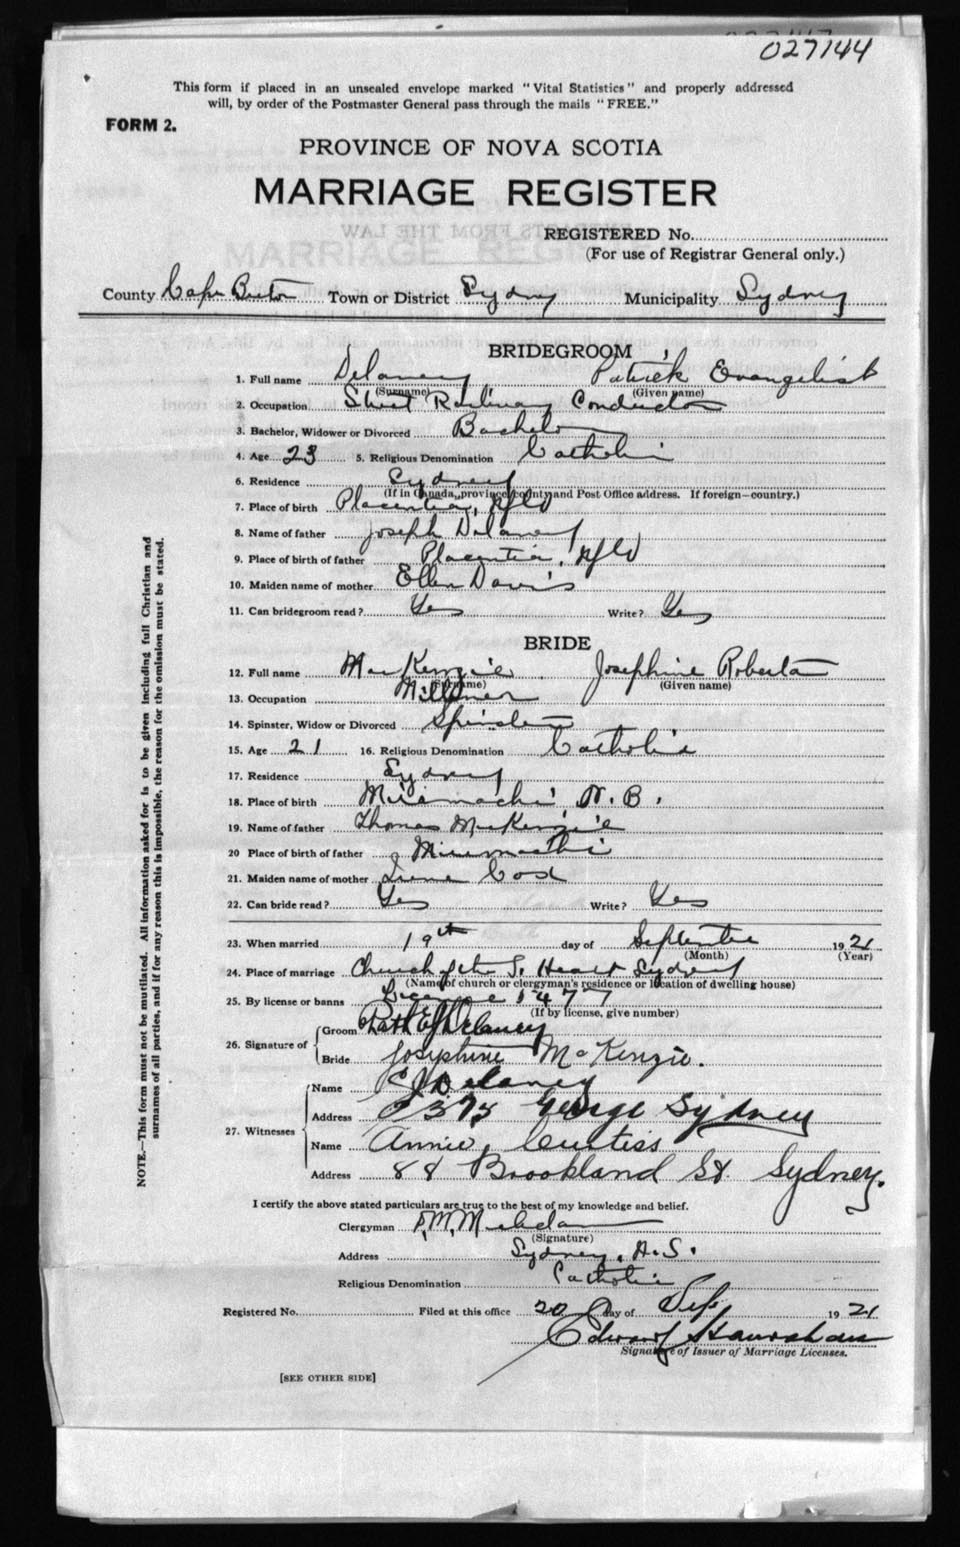 027144
This form if placed in an unsealed envelope marked "Vital Statistics" and properly addressed
will, by order of the Postmaster General pass through the mails "FREE."
FORM 2.
PROVINCE OF NOVA SCOTIA
MARRIAGE REGISTER
REGISTERED No.
(For use of Registrar General only.)
County Cape Breton Town or District Sydney Municipality Sydney
BRIDEGROOM
1. Full name Delaney Patrick Evangelist
(Surname) (Given name)
2. Occupation Street Railway Conductor
3. Bachelor, Widower or Divorced Bachelor
4. Age 23 5. Religious Denomination Catholic
6. Residence Sydney
(If in Canada, province, county and Post Office address. If foreign—country.)
7. Place of birth Placentia, Nfld
8. Name of father Joseph Delaney
9. Place of birth of father Placentia, Nfld
10. Maiden name of mother Ellen Davis
11. Can bridegroom read? Yes Write? Yes
BRIDE
12. Full name MacKenzie Josephine Roberta
(Surname) (Given name)
13. Occupation Milliner
14. Spinster, Widow or Divorced Spinster
15. Age 21 16. Religious Denomination Catholic
17. Residence Sydney
18. Place of birth Miramachi N.B.
19. Name of father Thomas MacKenzie
20 Place of birth of father Miramachi
21. Maiden name of mother
22. Can bride read? Yes Write? Yes
23. When married 19th day of September 1921
(Month) (Year)
24. Place of marriage Church of the S. Heart Sydney
(Name of church or clergyman's residence or location of dwelling house)
25. By license or banns License 1477
(If by license, give number)
26. Signature of
Groom Path E Delaney
Bride Josephine McKenzie.
27. Witnesses
Name Delaney
Address 373 George Sydney
Name Annie Curtiss
Address 88 Brookland St. Sydney.
I certify the above stated particulars are true to the best of my knowledge and belief.
Clergyman
(Signature)
Address Sydney, N.S.
Religious Denomination Catholic
Registered No. Filed at this office 20 day of Sep 1921
Edward Hanrahan
Signature of Issuer of Marriage Licenses.
[SEE OTHER SIDE]
NOTE.—This form must not be mutilated. All information asked for is to be given including full Christian and
surnames of all parties, and if for any reason this is impossible, the reason for the omission must be stated.